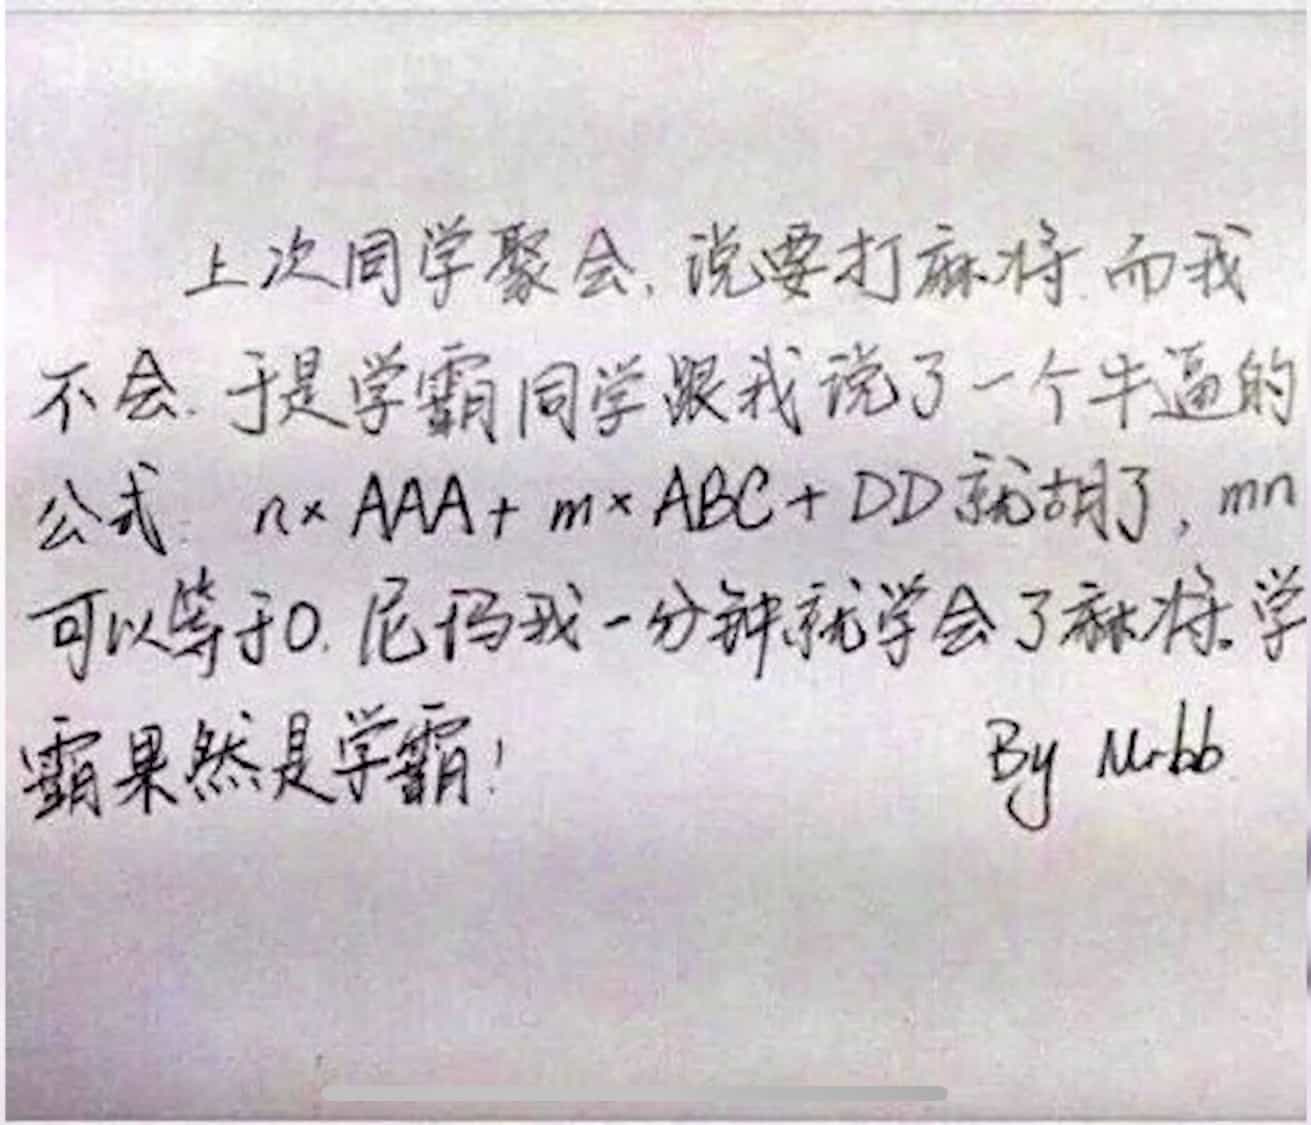 上次同学聚会,说要打麻将.而我
不会.于是学霸同学跟我说了一个牛逼的
公式: n×AAA+m×ABC+DD就胡了,mn
可以等于0.尼玛我一分钟就学会了麻将。学
霸果然是学霸!
By Mrbb